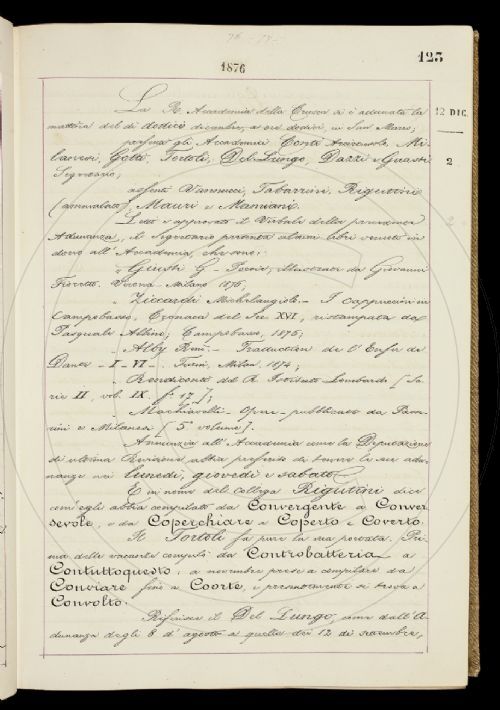 76 - 77 -
123
1876
La R. Accademia della Crusca si è adunata la
mattina del dì dodici dicembre, a ore dodici, in San Marco;
12 DIC.
presenti gli Accademici Conti Arciconsolo, Mi-
lanesi, Gotti, Tortoli, Del Lungo, Dazzi e Guasti
2
Segretario;
assenti Vannucci, Tabarrini, Rigutini
(ammalato), Mauri e Mamiani.
Letto e approvato il Verbale della precedente
Adunanza, il Segretario presenta alcuni libri venuti in
dono all'Accademia, che sono:
" Giusti G - Poesie, illustrate da Giovanni
Fioretto. Verona - Milano 1876,
" Ziccardi Michelangiolo - I cappuccini in
Campobasso, Cronaca del Sec XVI, ristampata da
Pasquale Albino; Campobasso, 1876;
" Alby René - Traduction de l'Enfer de
Dante - I - VI - Turin, Milan, 1874;
" Rendiconti del R. Istituto Lombardo [Se-
rie II, vol. IX. f. 17];
Machiavelli - Opere - pubblicate da Passe-
rini e Milanesi [5° volume].
Annunzia all'Accademia come la Deputazione
di ultima Revisione abbia preferito di tenere le sue adu-
nanze nei lunedì, giovedì e sabato.
E in nome del Collega Rigutini dice
com'egli abbia compilato da Convergente a Conver-
sevole, e da Coperchiare a Coperto e Coverto.
Il Tortoli fa pure la sua portata. Pri-
ma delle vacanze compilò da Controbatteria a
Contuttoquesto; a novembre prese a compilare da
Conviare fino a Coorte, e presentemente si trova a
Convolto.
Riferisce il Del Lungo, come dall'A-
dunanza degli 8 d'agosto a quella dei 12 di settembre,